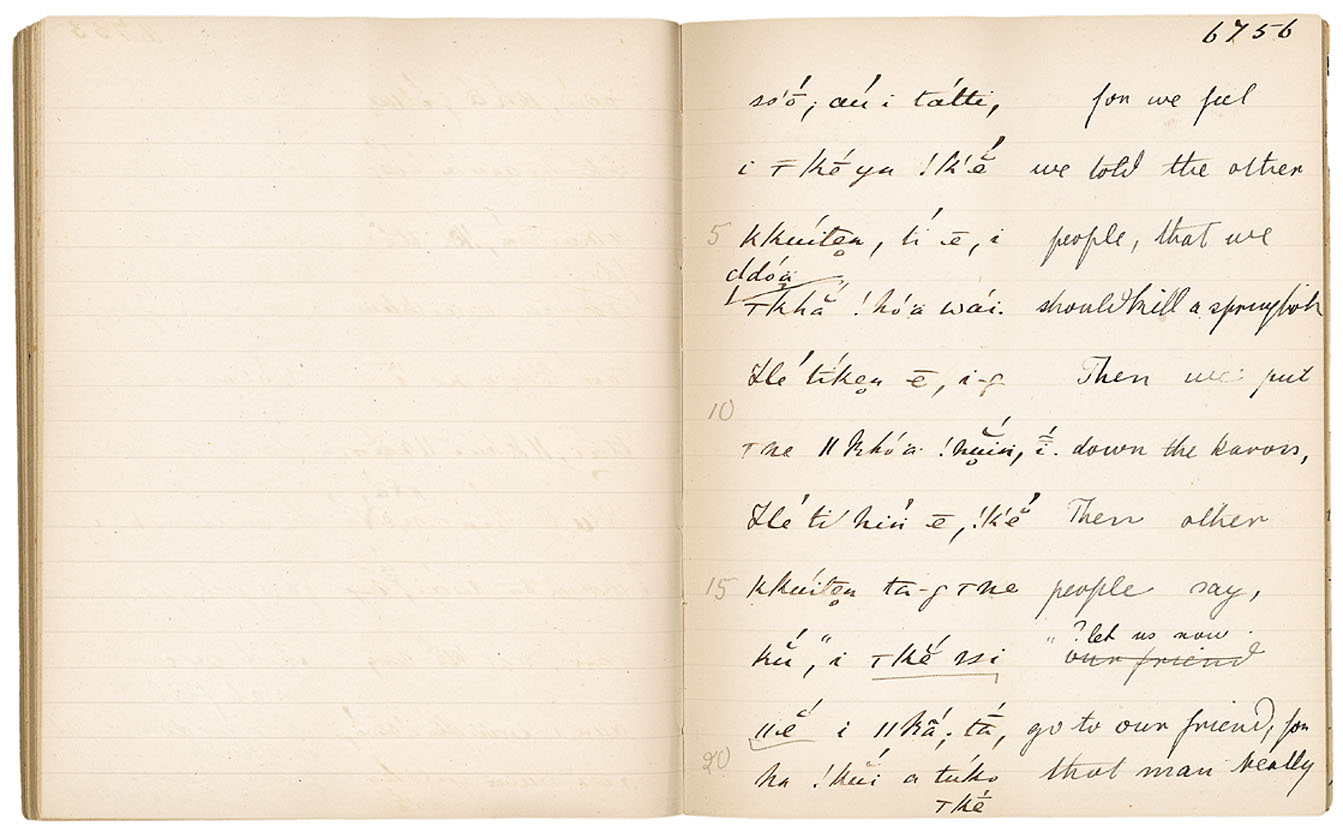 6756
ss'ō; aú i tátti, for we feel
i ₸ kē ya !k'ĕ́ we told the other
5 kkuíten̥, tí ē, i people, that we
ddóä
₸khă !hóä wái. should kill a springbok
Hé tíken̥ ē, i-g Then we put
10
₸ne ǁkhóä !nuin, í. down the kaross,
Hé ti hiń ē, !k'ĕ́ Then other
15 kkuíten̥ ta-g ₸ne people say,
"?let us now
kŭ́, " i ₸kĕ́ ssi our friend
ǁĕ́ i ǁkā́; tā́, go to our friend, for
20 ha !kuí a túko that man really
₸kē